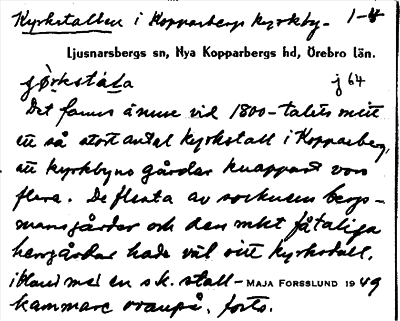 Kyrkstallen i Kopparbergs kyrkby. 1-8
Ljusnarsbergs sn, Nya Kopparbergs hd, Örebro län.
j 64
Det fanns ännu vid 1800-talets mitt
ett så stort antal kyrkstall i Kopparberg,
att kyrkbyns gårdar knappast voro
flera. De flesta av socknens bergs-
mansgårdar och den mkt fåtaliga
herrgårdar hade väl sitt kyrkstall,
ibland med en s.k. stall-
MAJA FORSSLUND 1949
kammare ovanpå. forts.